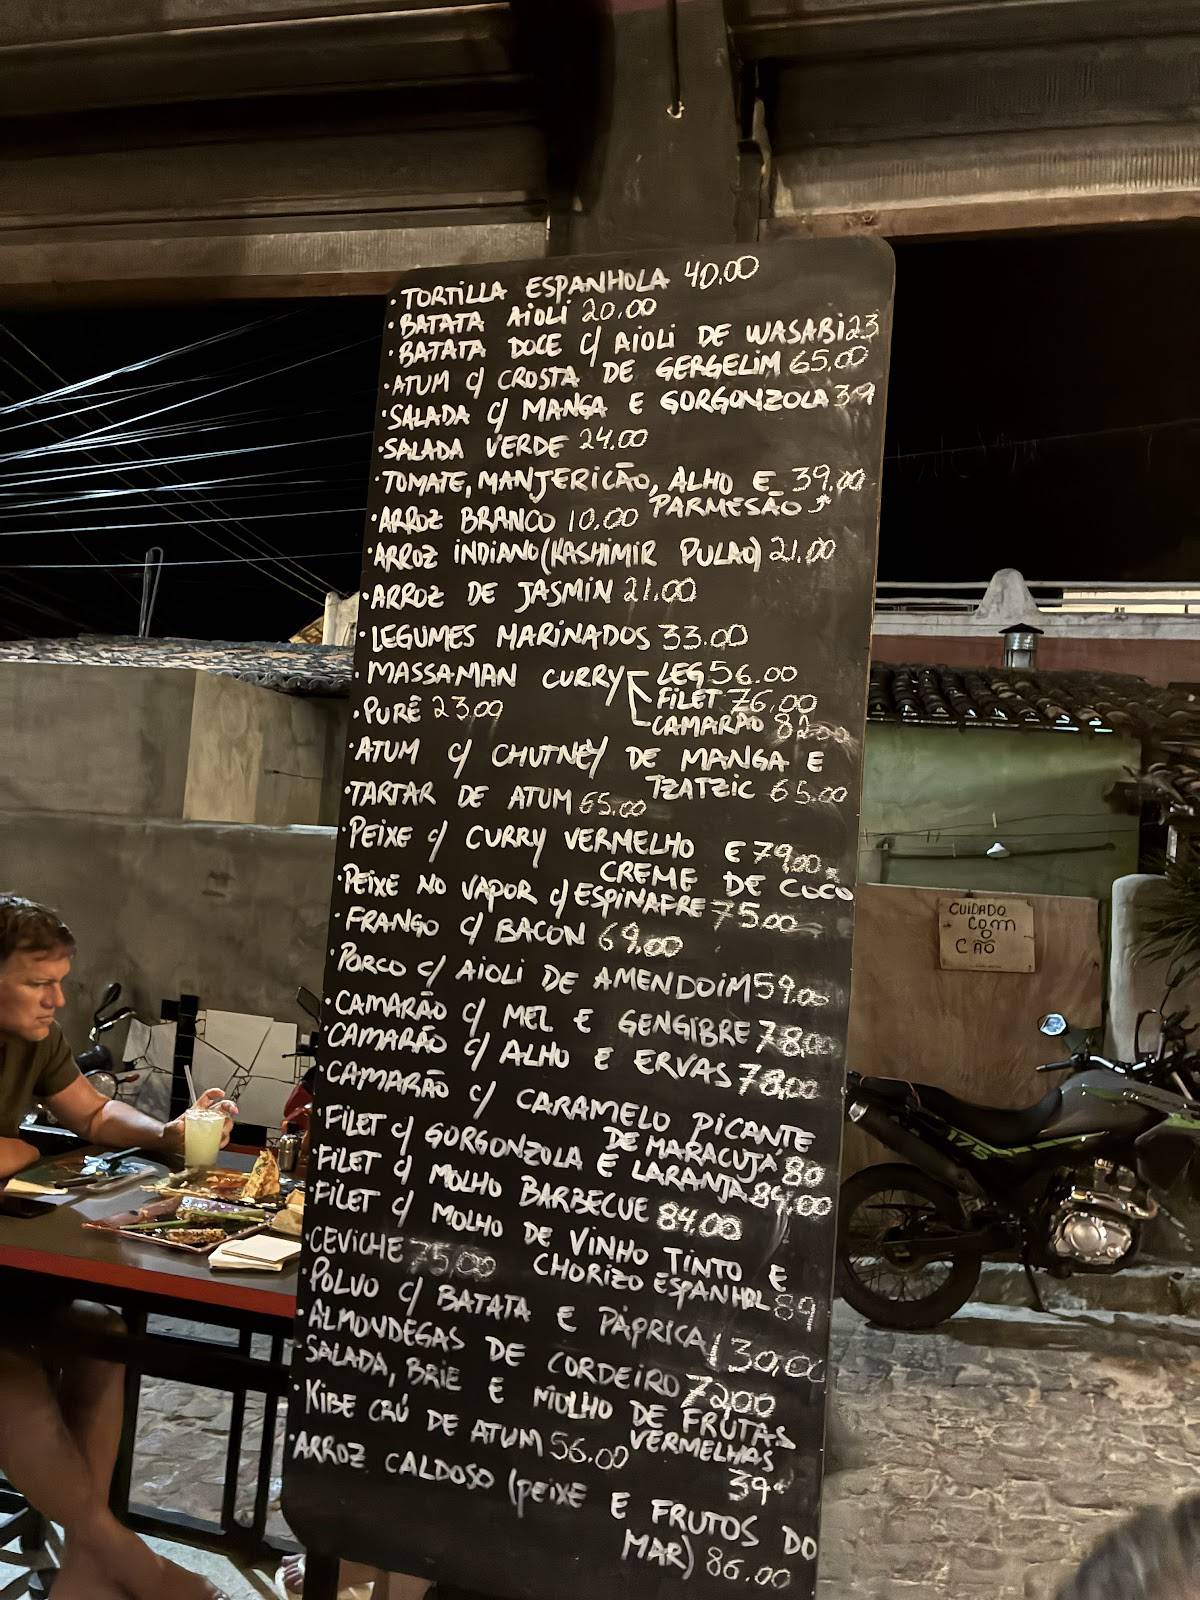 • TORTILLA ESPANHOLA 40,00
• BATATA AIOLI 20.00
• BATATA DOCE C/ AIOLI DE WASABI 23
• ATUM C/ CROSTA DE GERGELIM 65,00
• SALADA C/ MANGA E GORGONZOLA 39
• SALADA VERDE 24.00
• TOMATE, MANJERICÃO, ALHO E 39.00
PARMESÃO
• ARROZ BRANCO 10,00
• ARROZ INDIANO (KASHIMIR PULAO) 21,00
• ARROZ DE JASMIN 21.00
• LEGUMES MARINADOS 33.00
• MASSAMAN CURRY LEG 56.00
FILET 76,00
CAMARÃO 82,00
• PURÊ 23,00
• ATUM C/ CHUTNEY DE MANGA E
TZATZIC 65.00
• TARTAR DE ATUM 65.00
• PEIXE C/ CURRY VERMELHO E 79,00
CREME DE COCO
• PEIXE NO VAPOR C/ ESPINAFRE 75.00
• FRANGO C/ BACON 69,00
• PORCO C/ AIOLI DE AMENDOIM 59,00
• CAMARÃO C/ MEL E GENGIBRE 78,00
• CAMARÃO C/ ALHO E ERVAS 78,00
• CAMARÃO C/ CARAMELO PICANTE
DE MARACUJÁ 80
• FILET C/ GORGONZOLA E LARANJA 84,00
• FILET C/ MOLHO BARBECUE 84,00
• FILET C/ MOLHO DE VINHO TINTO E
CHORIZO ESPANHOL 89
• CEVICHE 75,00
• POLVO C/ BATATA E PÁPRICA 130,00
• ALMONDEGAS DE CORDEIRO 72,00
• SALADA, BRIE E MOLHO DE FRUTAS
VERMELHAS
39
• KIBE CRÚ DE ATUM 56.00
• ARROZ CALDOSO (PEIXE E FRUTOS DO
MAR) 86.00
CUIDADO
COM
O
CÃO
175